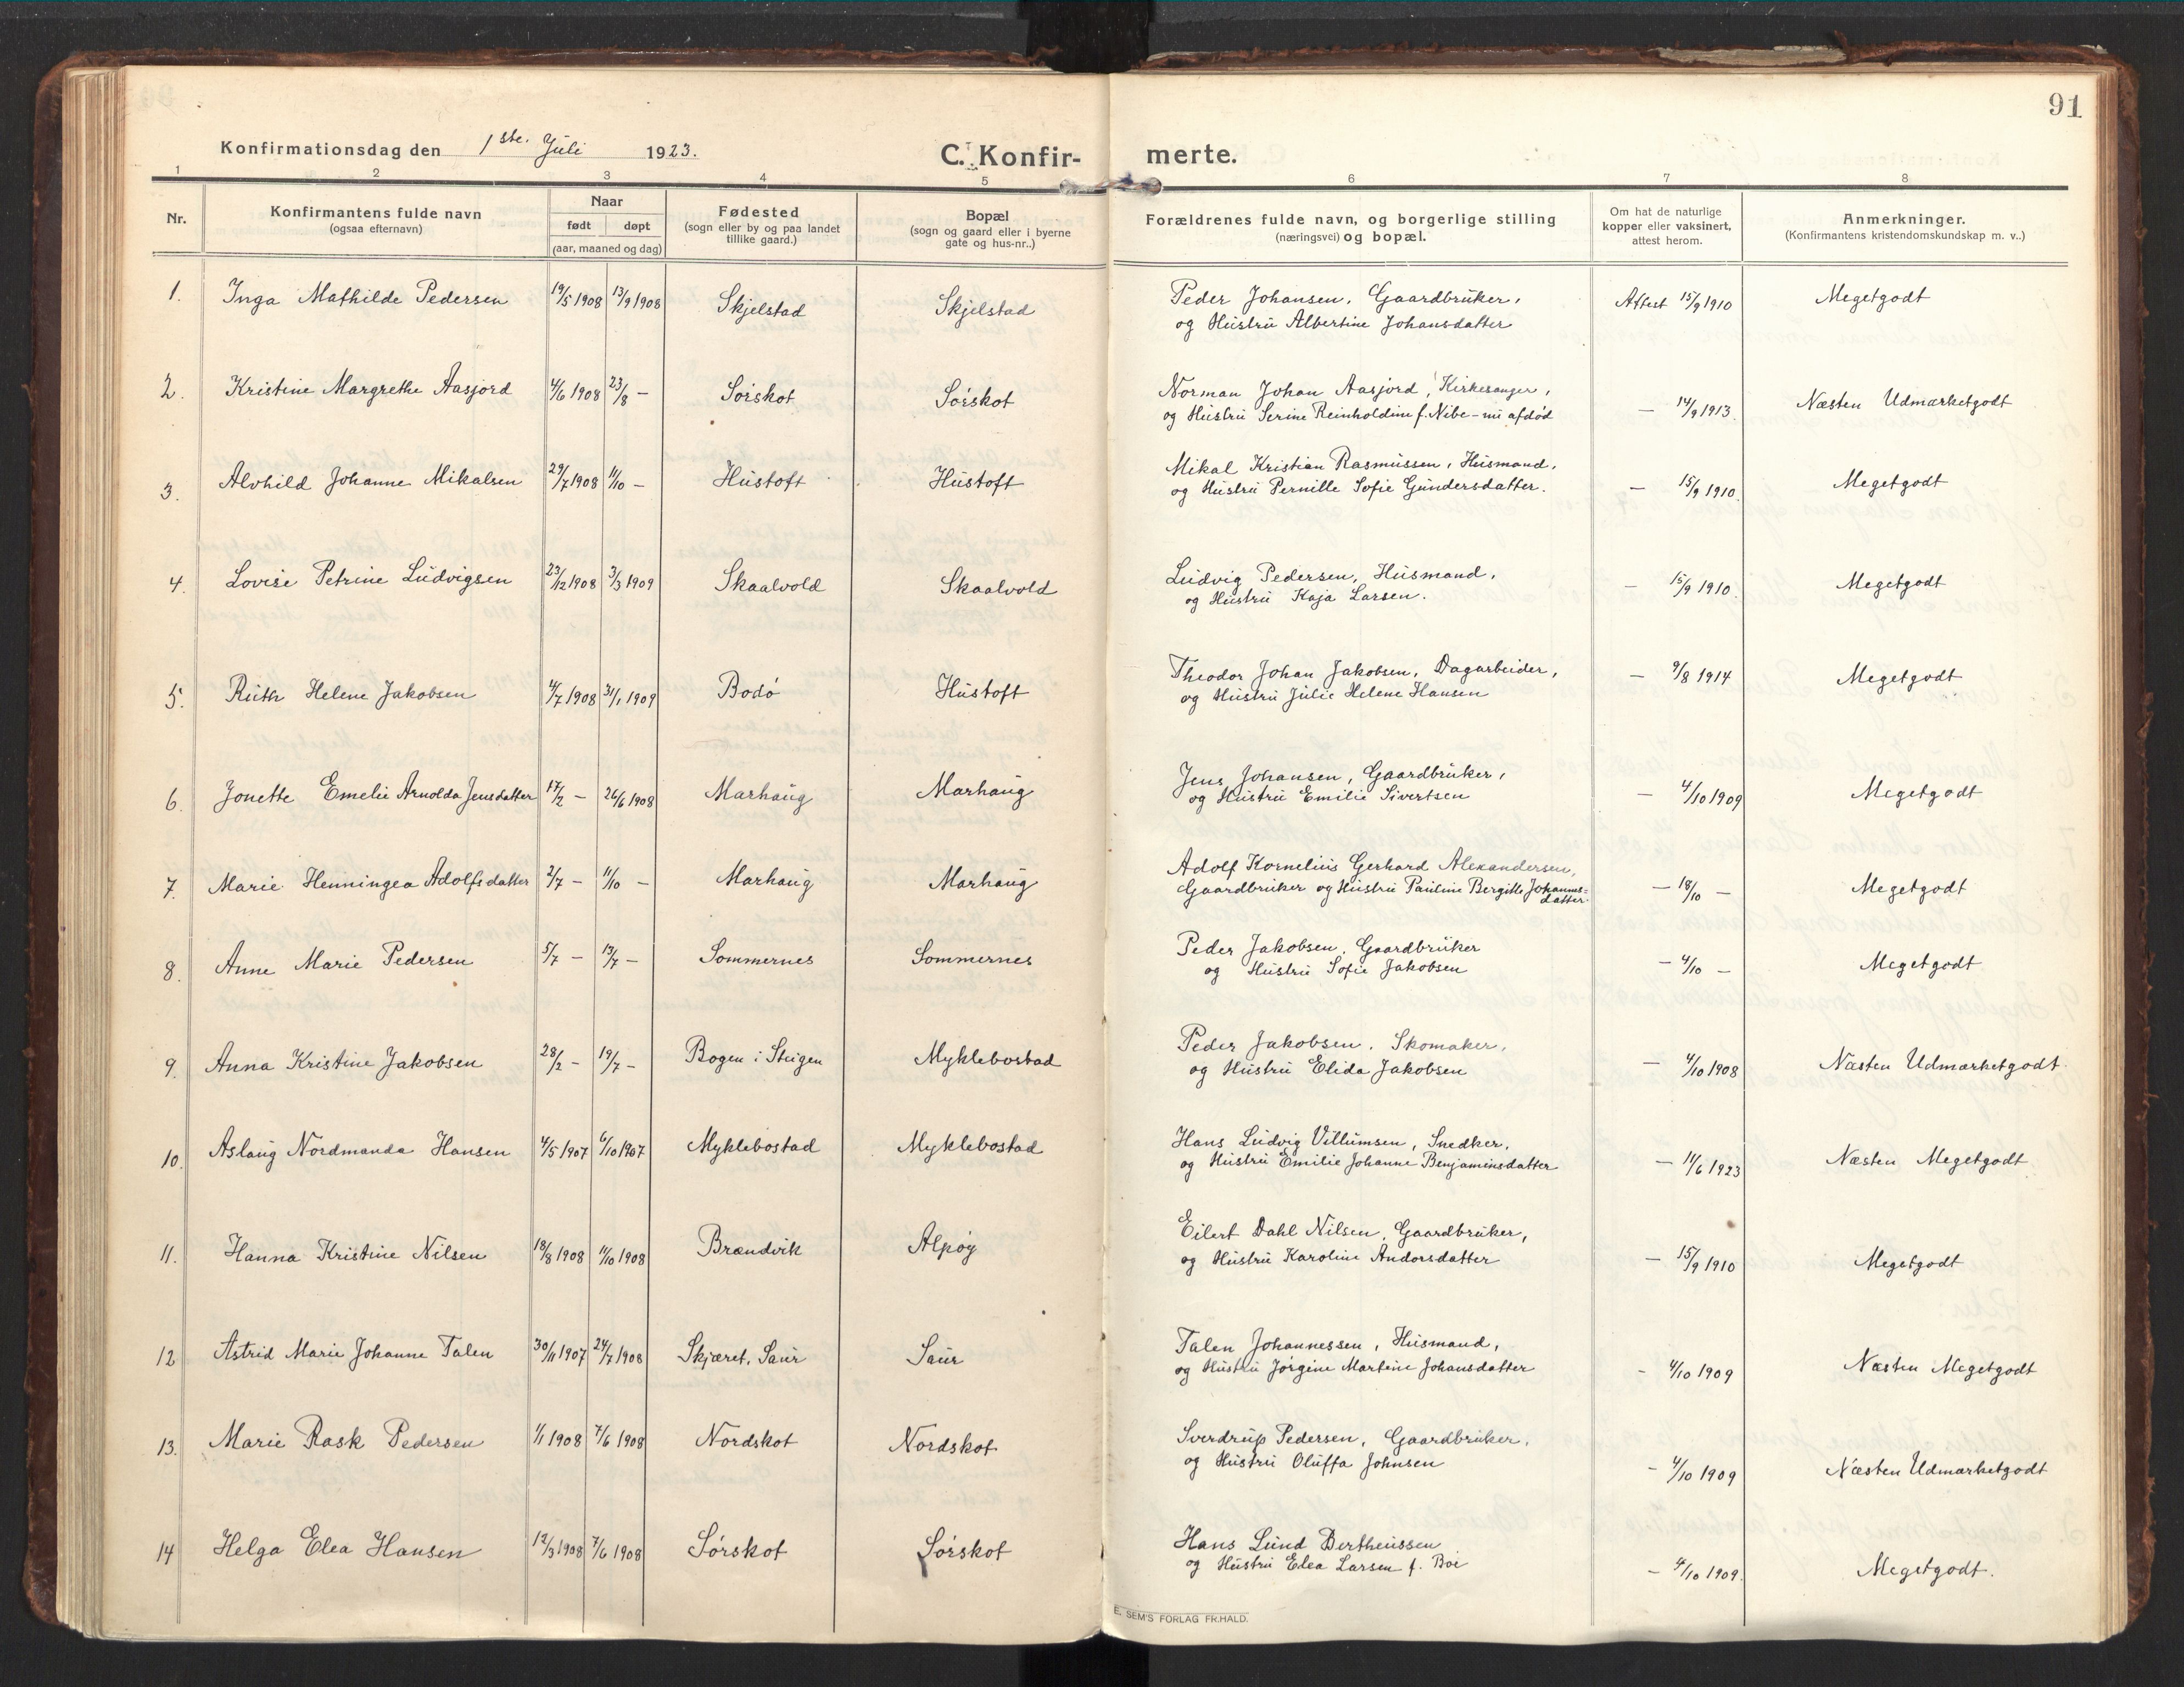 91
Konfirmationsdag den 1ste. Juli 1923.
C. Konfir- merte.
1 2 3 4 5 6 7 8
Nr.
Konfirmantens fulde navn
(ogsaa efternavn)
Naar
født døpt
(aar, maaned og dag)
Fødested
(sogn eller by og paa landet
tillike gaard.)
Bopæl
(sogn og gaard eller i byerne
gate og hus-nr..)
Forældrenes fulde navn, og borgerlige stilling
(næringsvei) og bopæl.
Om hat de naturlige
kopper eller vaksinert,
attest herom.
Anmerkninger.
(Konfirmantens kristendomskundskap m. v..)
1. Inga Mathilde Pedersen 19/5 1908 13/9 1908 Skjelstad Skjelstad Peder Johansen, Gaardbrüker, Attest 15/9 1910 Megetgodt
og Hüstrü Albertine Johansdatter
2. Kristine Margrethe Aasjord 4/6 1908 23/8 – Sørskot Sørskot Norman Johan Aasjord, Kirkesanger, – 14/9 1913. Næsten Udmærketgodt
og Hüstrü Serine Reinholdine f. Nibe – nü afdød
3. Alvhild Johanne Mikalsen 29/7 1908 11/10 – Hüstoft Hüstoft Mikal Kristian Rasmüssen, Hüsmand, – 15/9 1910. Megetgodt
og Hüstrü Pernille Sofie Gündersdatter.
4. Lovise Petrine Lüdvigsen 23/12 1908 3/3 1909 Skaalvold Skaalvold Lüdvig Pedersen, Hüsmand, – 15/9 1910. Megetgodt
og Hüstrü Kaja Larsen.
5. Rüth Helene Jakobsen 4/7 1908 31/1 1909 Bodø Hüstoft Theodor Johan Jakobsen, Dagarbeider, – 9/8 1914 Megetgodt
og Hüstrü Jülie Helene Hansen
6. Jonette Emelie Arnolda Jensdatter 17/2 – 26/6 1908 Marhaüg Marhaüg Jens Johansen, Gaardbrüker, – 4/10 1909 Megetgodt
og Hüstrü Emilie Sivertsen
7. Marie Henningea Adolfsdatter 2/7 – 11/10 – Marhaüg Marhaüg Adolf Korneliüs Gerhard Alexandersen, – 18/10 – Megetgodt
Gaardbrüker og Hüstrü Paüline Bergitte Johannes=
datter.
8. Anne Marie Pedersen 5/7 – 13/7 – Sommernes Sommernes Peder Jakobsen, Gaardbrüker – 4/10 – Megetgodt
og Hüstrü Sofie Jakobsen
9. Anna Kristine Jakobsen 28/2 – 19/7 – Bogen i Steigen Myklebostad Peder Jakobsen, Skomaker, – 4/10 1908 Næsten Udmærketgodt.
og Hüstrü Elida Jakobsen
10. Aslaüg Nordmanda Hansen 4/5 1907 6/10 1907 Myklebostad Myklebostad Hans Lüdvig Villümsen, Snedker, – 11/6 1923 Næsten Megetgodt
og Hüstrü Emilie Johanne Benjaminsdatter
11. Hanna Kristine Nilsen 18/8 1908 11/10 1908 Brændvik Alpøy Eilert Dahl Nilsen, Gaardbrüker, – 15/9 1910 Megetgodt
og Hüstrü Karoline Andorsdatter
12 Astrid Marie Johanne Talen 30/11 1907 24/7 1908 Skjæret, Saür Saür Talen Johannessen, Hüsmand, – 4/10 1909 Næsten Megetgodt
og Hüstrü Jørgine Martine Johansdatter
13. Marie Rask Pedersen 1/1 1908 7/6 1908 Nordskot Nordskot Sverdrüp Pedersen, Gaardbrüker, – 4/10 1909 Næsten Udmærketgodt
og Hüstrü Olüffa Johnsen
14 Helga Elea Hansen 12/3 1908 7/6 1908 Sørskot Sørskot Hans Lünd Bertheüssen – 4/10 1909. Megetgodt.
og Hüstrü Edea Larsen f. Boi
E. SEM'S FORLAG FR.HALD.